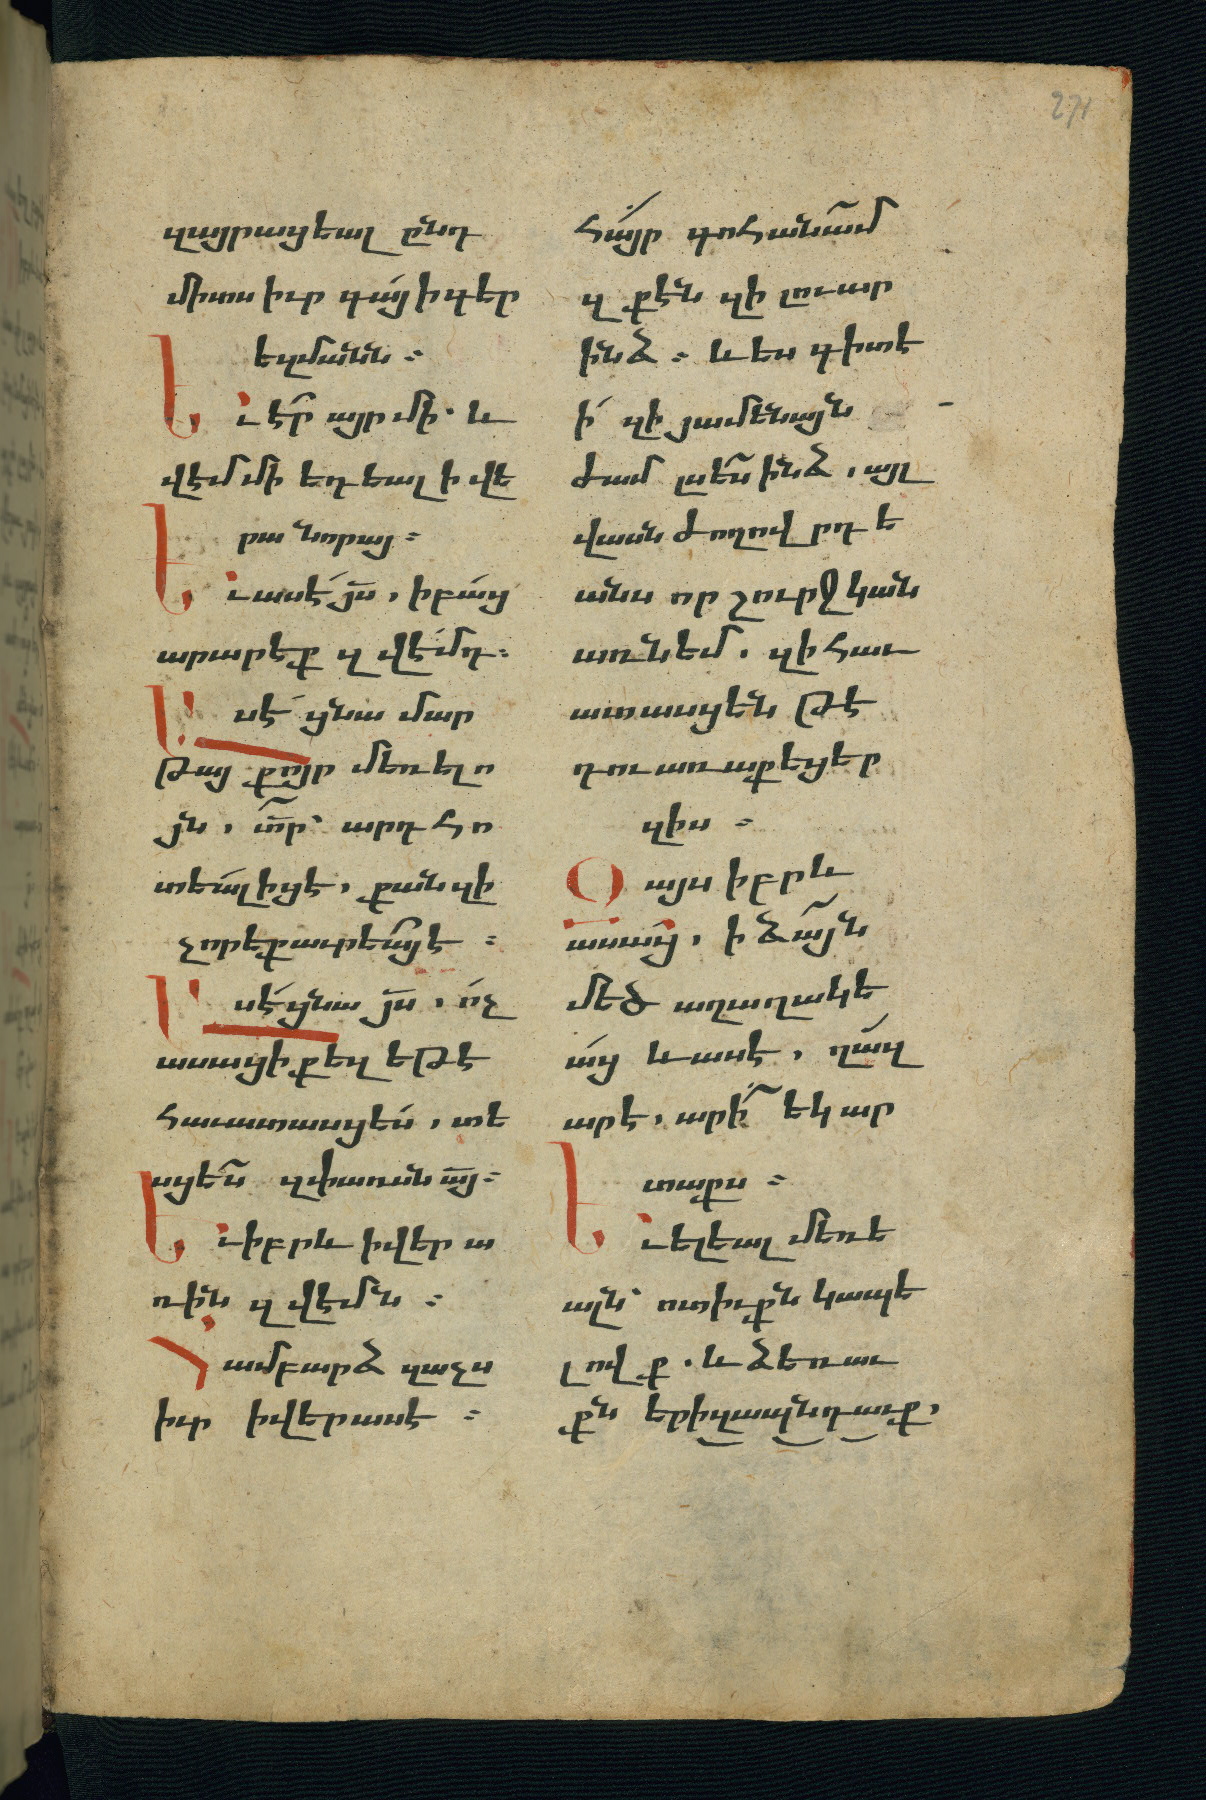 271
զայրացեալ ընդ
միտս իւր գայ ի գեր
եզմանն ։
Եւ էր այր մի · և
վէմ մի եդեալ ի վե
րա նորայ ։
Եւ ասէ յս , ի բաց
արարէք զվէմդ ։
Ասէ ցնա մար
թայ քոյր մեռելո
յն , տր՝ արդ հո
տեալ իցէ , քանզի
չորեքաւրեայ է ։
Ասէ ցնա յս , ոչ
ասացի քեզ եթէ
հաւատասցես , տե
սցես զփառսն այ ։
Եւ իբրև ի վեր ա
ռին զվէմն ։
Համբարձ զաչս
իւր ի վեր ասէ ։
Հայր գոհանամ
զքէն զի լուար
ինձ ։ և ես գիտէ
ի զի յամենայն
ժամ լսես ինձ , այլ
վասն ժողովրդե
անս որ շուրջ կան
առնեմ . զի հաւ
ատասցեն թէ
դու առաքեցեր
զիս ։
Զայս իբրև
ասաց , ի ձայն
մեծ աղաղակե
աց և ասէ , ղազ
արէ , արի եկ ար
տաքս ։
Եւ ել եալ մեռե
ալն՝ ոտիւքն կապե
լովք . և ձեռաւ
քն երիզապնդաւք ,